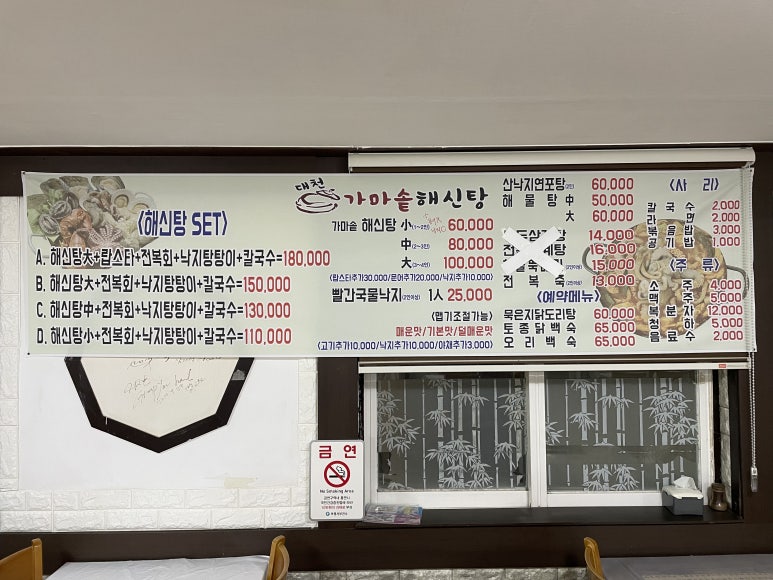 <해신탕 SET>
A. 해신탕大+랍스타+전복회+낙지탕탕이+칼국수=180,000
B. 해신탕大+전복회+낙지탕탕이+칼국수=150,000
C. 해신탕中+전복회+낙지탕탕이+칼국수=130,000
D. 해신탕小+전복회+낙지탕탕이+칼국수=110,000
대천 가마솥해신탕
가마솥 해신탕 小(1~2인) 60,000
中(2~3인) 80,000
大(3~4인) 100,000
(랍스타추가30,000/문어추가20,000/낙지추가10,000)
빨간국물낙지(2인이상) 1人 25,000
(맵기조절가능)
매운맛/기본맛/덜매운맛
(고기추가10,000/낙지추가10,000/야채추가3,000)
산낙지연포탕 60,000
해물탕 中 50,000
大 60,000
14,000
16,000
15,000
전복죽(2인이상) 13,000
<예약메뉴>
묵은지닭도리탕 60,000
토종닭백숙 65,000
오리백숙 65,000
<사리>
칼국수 2,000
라면 2,000
볶음밥 3,000
공기밥 1,000
<주류>
소주 4,000
맥주 5,000
복분자 12,000
청하 5,000
음료수 2,000
금연
No Smoking Area